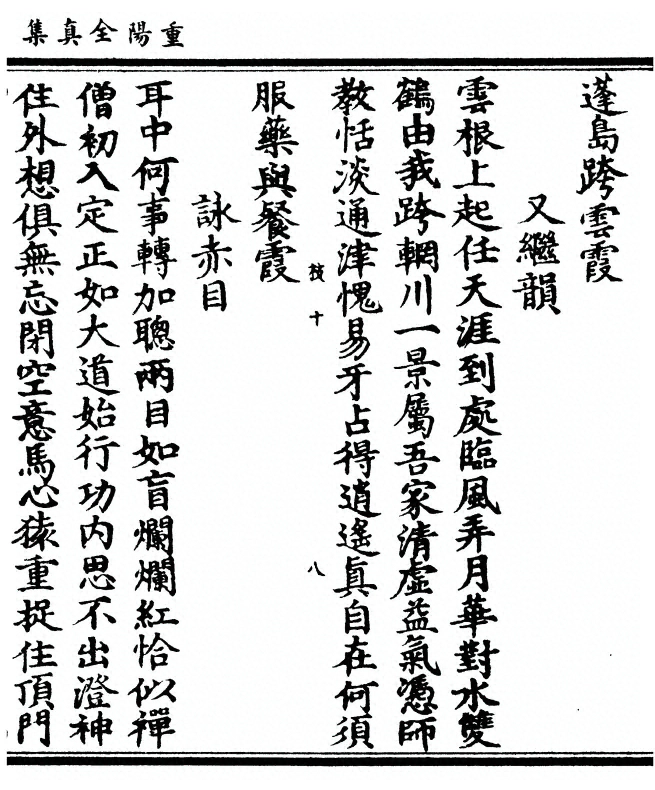 重陽全真集
蓬島跨雲霞
又繼韻
雲根上起任天涯到處臨風弄月華對水雙
鶴由我跨輞川一景屬吾家清虛益氣憑師
教恬淡通津愧易牙占得逍遙眞自在何須
服藥與餐霞
枝十
八
詠赤目
耳中何事轉加聰兩目如盲爛爛紅恰似禪
僧初入定正如大道始行功内思不出澄神
住外想俱無忘閉空意馬心猿重捉住頂門